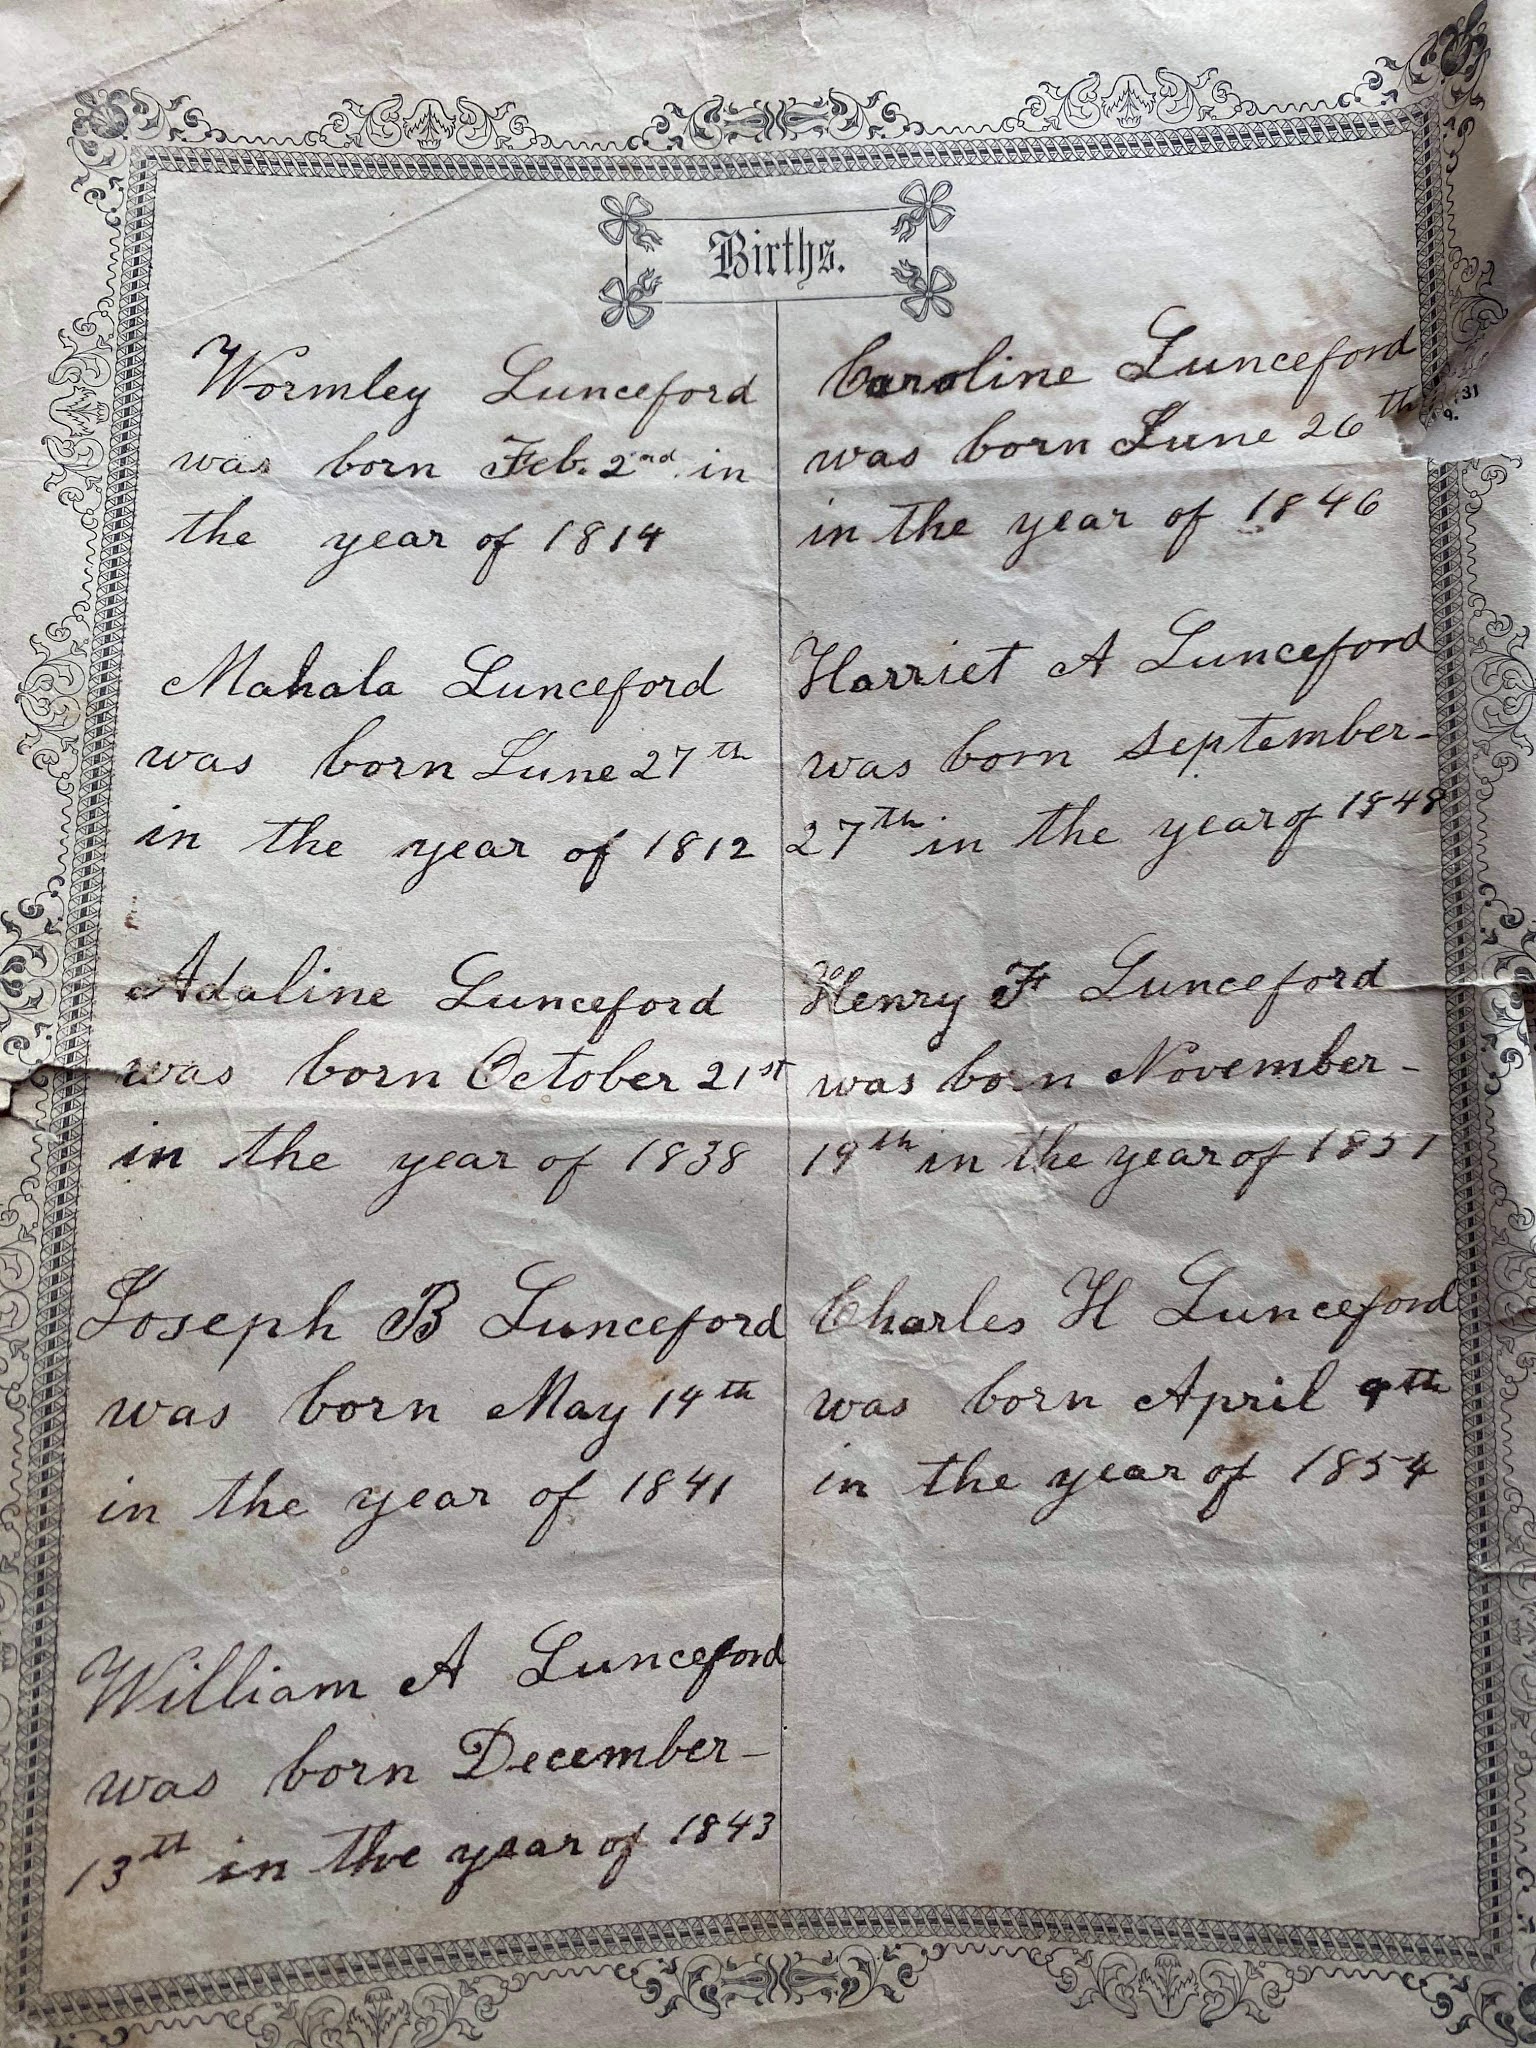 Births.
Wormley Lunceford
was born Feb. 2nd in
the year of 1814
Mahala Lunceford
was born June 27th
in the year of 1812
Adaline Lunceford
was born October 21st
in the year of 1838
Joseph B Lunceford
was born May 14th
in the year of 1841
William A Lunceford
was born December-
13th in the year of 1843
Caroline Lunceford
was born June 26th
in the year of 1846
Harriet A Lunceford
was born September-
27th in the year of 1848
Henry F Lunceford
was born November-
19th in the year of 1851
Charles H Lunceford
was born April 9th
in the year of 1854
31
9.